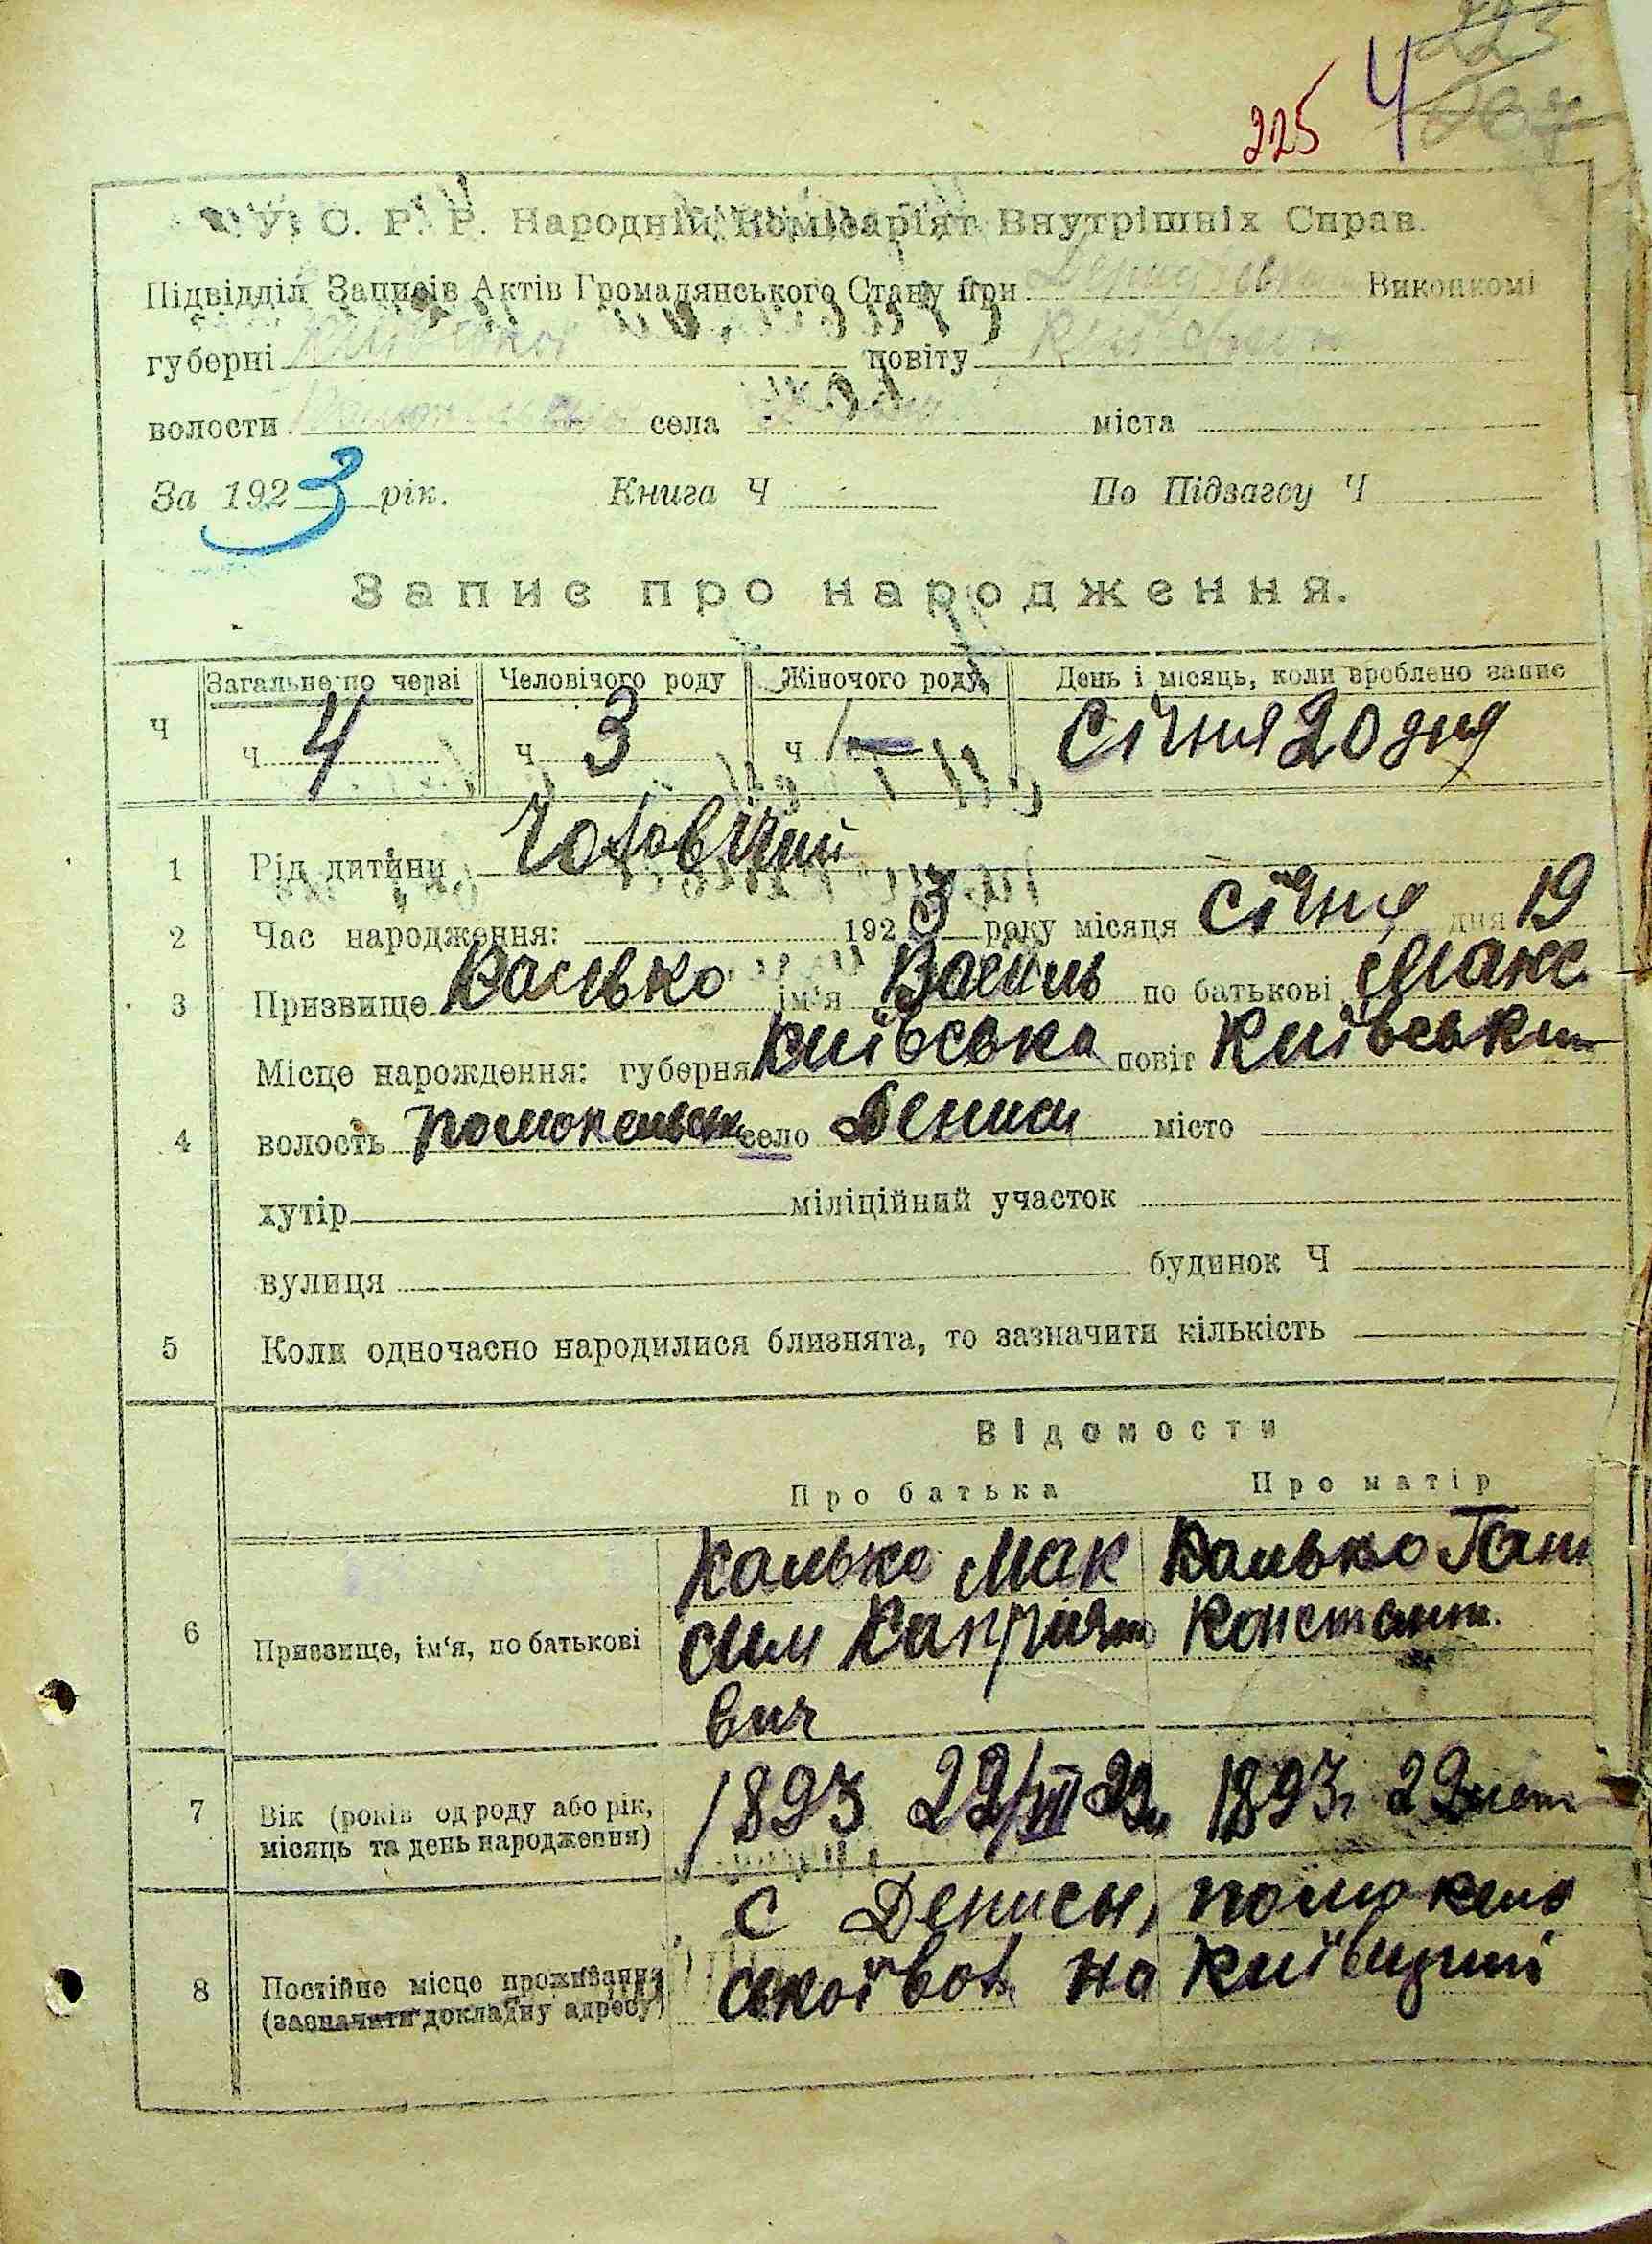 225 4
У. С. Р. Р. Народній Комісаріят Внутрішніх Справ.
Підвідділ Записів Актів Громадянського Стану при Виконкомі
губерні повіту
волости села міста
За 1923 рік. Книга Ч По Підзагсу Ч
Запис про народження.
Загальне по черзі Человічого роду Жіночого роду День і місяць, коли зроблено запис
Ч ч 4 ч 3 ч — Січня 20 дня
1 Рід дитини Чоловічий
2 Час народження: 1923 року місяця Січня дня 19
3 Призвище Калько ім'я Василь по батькові Макс
Місце нарождення: губерня Київська повіт Київський
4 волость село Дениси місто
хутір міліційний участок
вулиця будинок Ч
5 Коли одночасно народилися близнята, то зазначити кількість
Відомости
Про батька Про матір
Калько Мак Калько
6 Призвище, ім'я, по батькові сим Констант.
вич
7 Вік (років од роду або рік, 1893 1893
місяць та день народження)
с Денисы,
8 Постійне місце проживання ської вол. на Київщині
(зазначити докладну адресу)